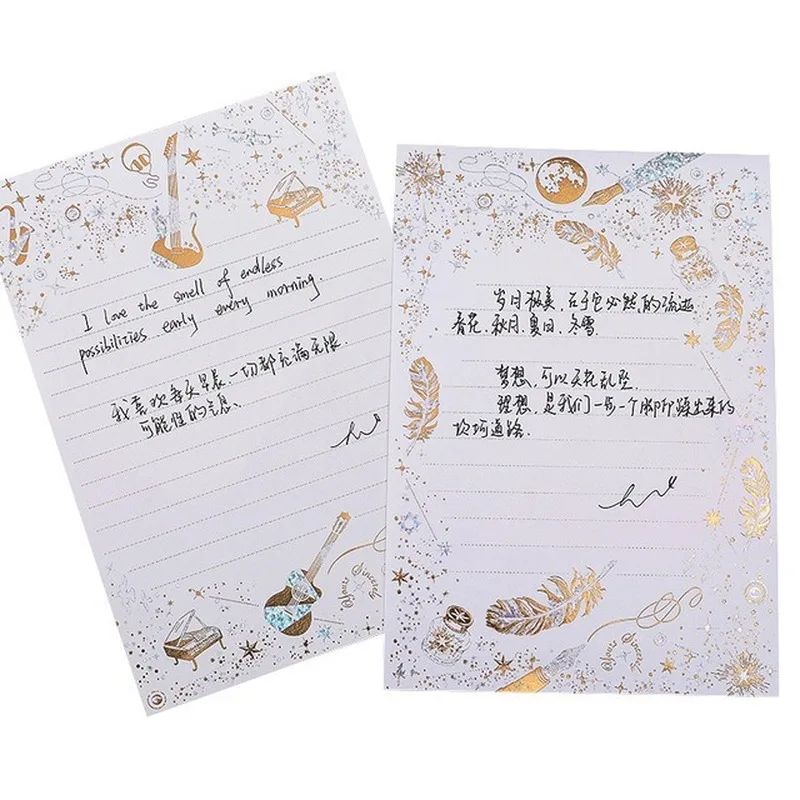 I love the smell of endless
possibilities early every morning.
我喜欢每天早晨、一切都充满无限
可能性的气息、
岁月极美,在于它必然的流逝
春花、秋月、夏日、冬雪、
梦想、可以天花乱坠
理想、是我们一步一个脚印踩出来的
坎坷道路、